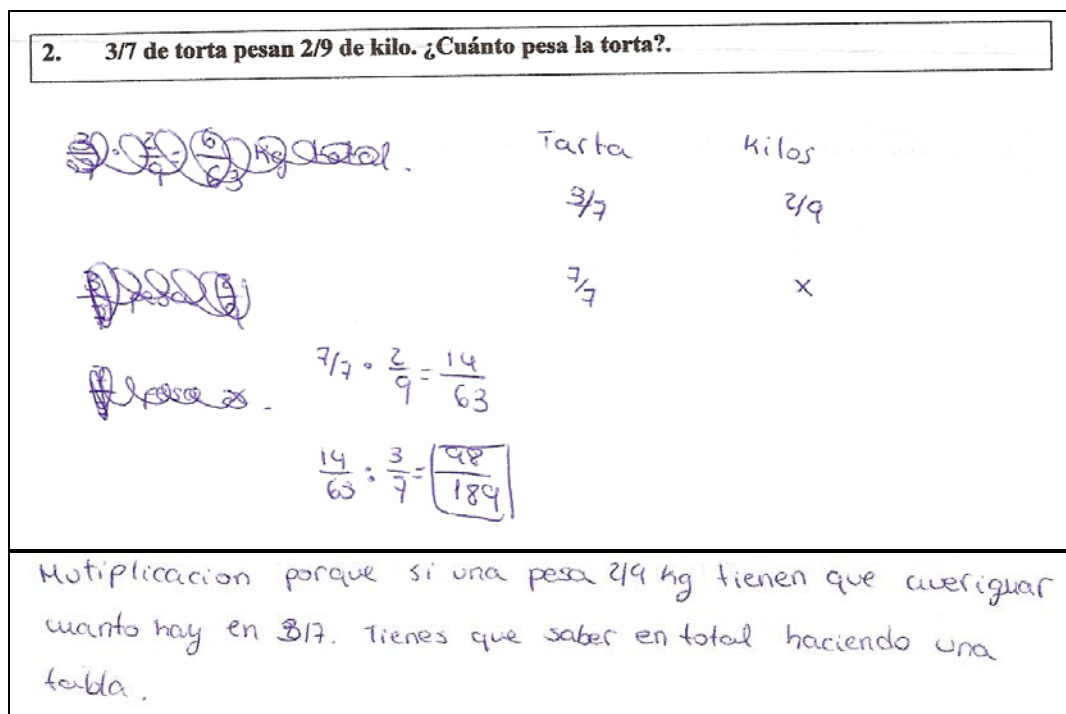 2. 3/7 de torta pesan 2/9 de kilo. ¿Cuánto pesa la torta?.
3/7 · 2/9 = 6/63 Kg total.
Tarta Kilos
3/7 2/9
7/7 x
pesa
pesa x.
7/7 · 2/9 = 14/63
14/63 : 3/7 = 98/189
Mutiplicacion porque si una pesa 2/9 kg tienen que averiguar
cuanto hay en 3/7. Tienes que saber en total haciendo una
tabla.